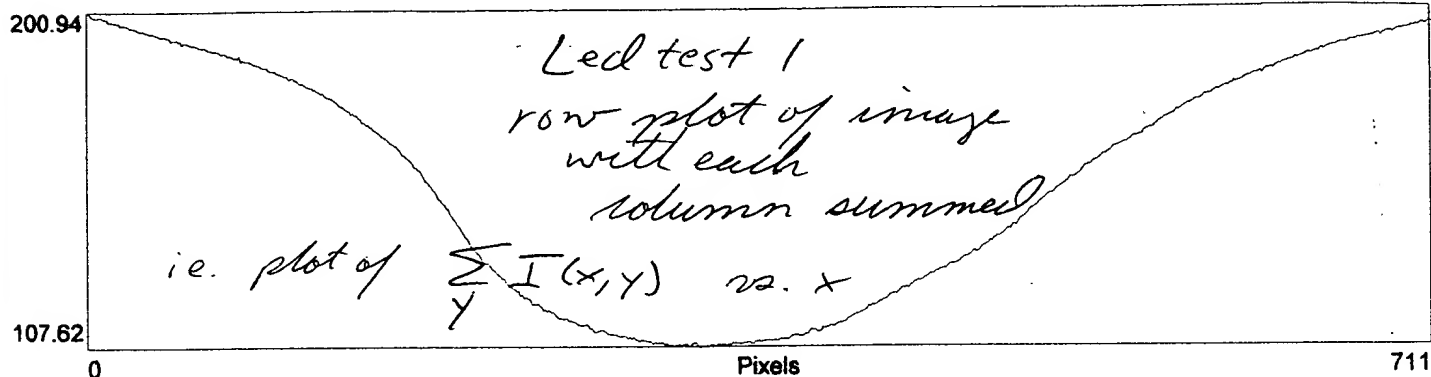 200.94
Led test 1
row plot of image
with each
column summed
i.e. plot of ∑ I(x,y) vs. x
y
107.62
0 Pixels 711